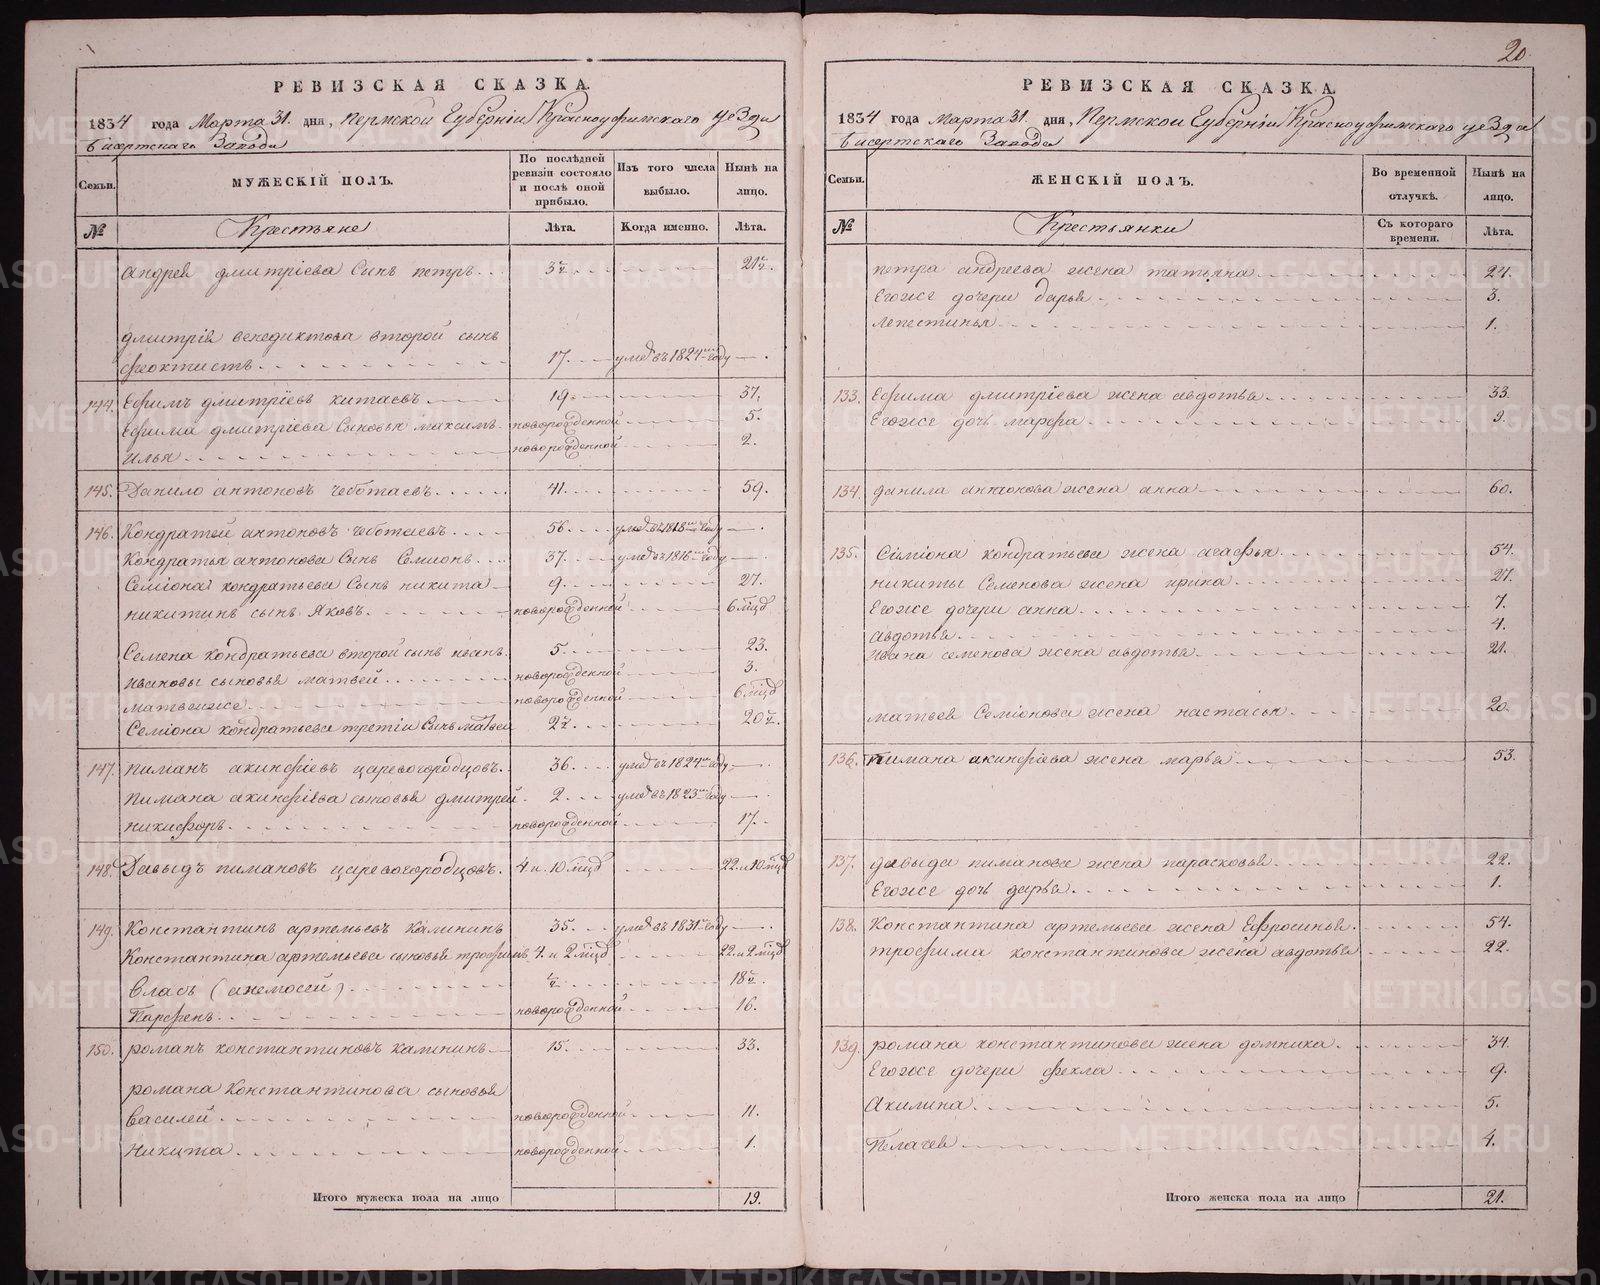 РЕВИЗСКАЯ СКАЗКА.
1834 года Марта 31. дня, Пермской Губерніи Красноуфимскаго уезда
бисертскаго Завода
Семьи.
МУЖЕСКІЙ ПОЛЪ.
По послѣдней ревизіи состояло и послѣ оной прибыло.
Изъ того числа выбыло.
Нынѣ на лицо.
№
Крестьяне
Лѣта.
Когда именно.
Лѣта.
андрея дмитріева Сынъ петръ 3½ 21½
дмитрія венедиктова второй сынъ
феоктистъ 17. умеръ въ 1824м году
144. Ефимъ дмитріевъ китаевъ 19 37.
Ефима дмитріева Сыновья максимъ новорожденной 5.
илья новорожденной 2.
145. Данило антоновъ чеботаевъ 41. 59.
146. Кондратей антоновъ чеботаевъ 56. умеръ въ 1818м году
Кондратья антонова Сынъ Семионъ 37. умеръ въ 1816м году
Семіона кондратьева Сынъ никита 9. 27.
никитинъ сынъ Яковъ новорожденной 6 мцъ
Семена кондратьева второй сынъ иванъ 5. 23.
ивановы сыновья матвей новорожденной 3.
матвейже новорожденной 6 мцъ
Семіона кондратьева третій Сынъ матвей 2½ 20½
147. пиманъ акинфіевъ царевогородцовъ 36. умеръ въ 1824м году
пимана акинфіева сыновья дмитрей 2. умеръ въ 1823м году
никифоръ новорожденной 17.
148. Давыдъ пимановъ царевогородцовъ. 4 и 10 мцъ 22 и 10 мцъ
149. Константинъ артемьевъ Калининъ 35. умеръ въ 1831м году
Константина артемьева сыновья трофимъ 4. и 2 мцъ 22. и 2 мцъ
власъ ½ 18½
Парфенъ новорожденной 16.
150. романъ константиновъ калининъ 15. 33.
романа Константинова сыновья
Василей новорожденной 11.
Никита новорожденной 1.
Итого мужеска пола на лицо 19.
20
РЕВИЗСКАЯ СКАЗКА.
1834 года Марта 31. дня, Пермской Губерніи Красноуфимскаго уезда
бисертскаго Завода
Семьи.
ЖЕНСКІЙ ПОЛЪ.
Во временной отлучкѣ.
Нынѣ на лицо.
№
Крестьянки
Съ котораго времени.
Лѣта.
петра андреева жена татьяна 24.
Егоже дочери дарья 3.
лепестинья 1.
133. Ефима дмитріева жена авдотья 33.
Егоже дочь марфа 9.
134. данила антонова жена анна 60.
135. Симіона кондратьева жена агафья 54.
никиты Семенова жена ирина 27.
Егоже дочери анна 7.
авдотья 4.
ивана семенова жена авдотья 21.
матвея Семіонова жена настасья 20.
136. пимана акинфіева жена марья 53.
137. давыда пиманова жена парасковья 22.
Егоже дочь дарья. 1.
138. Константина артемьева жена Ефросинья 54.
трофима константинова жена авдотья 22.
139. романа константинова жена домника. 34.
Егоже дочери фекла 9.
Акилина. 5.
Пелагея 4.
Итого женска пола на лицо 21.
METRIKI.GASO-URAL.RU